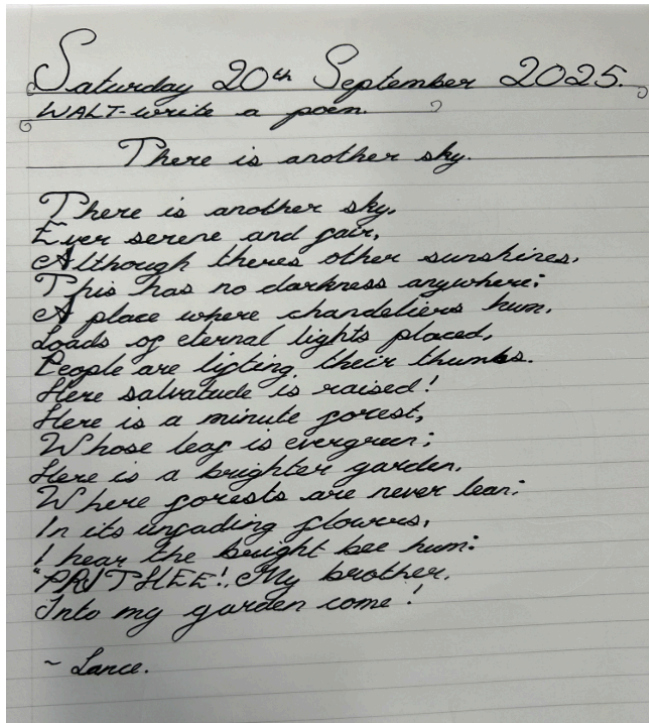 Saturday 20th September 2025.
WALT-write a poem.
There is another sky.
There is another sky,
Ever serene and fair,
Although theres other sunshines,
This has no darkness anywhere;
A place where chandeliers hum,
Loads of eternal lights placed,
People are lifting, their thumbs.
Here salvatude is raised!
Here is a minute forest,
Whose leaf is evergreen;
Here is a brighter garden,
Where forests are never lean;
In its unfading flowers,
I hear the bright bee hum:
"PRITHEE! My brother,
Into my garden come!
~ Lance.